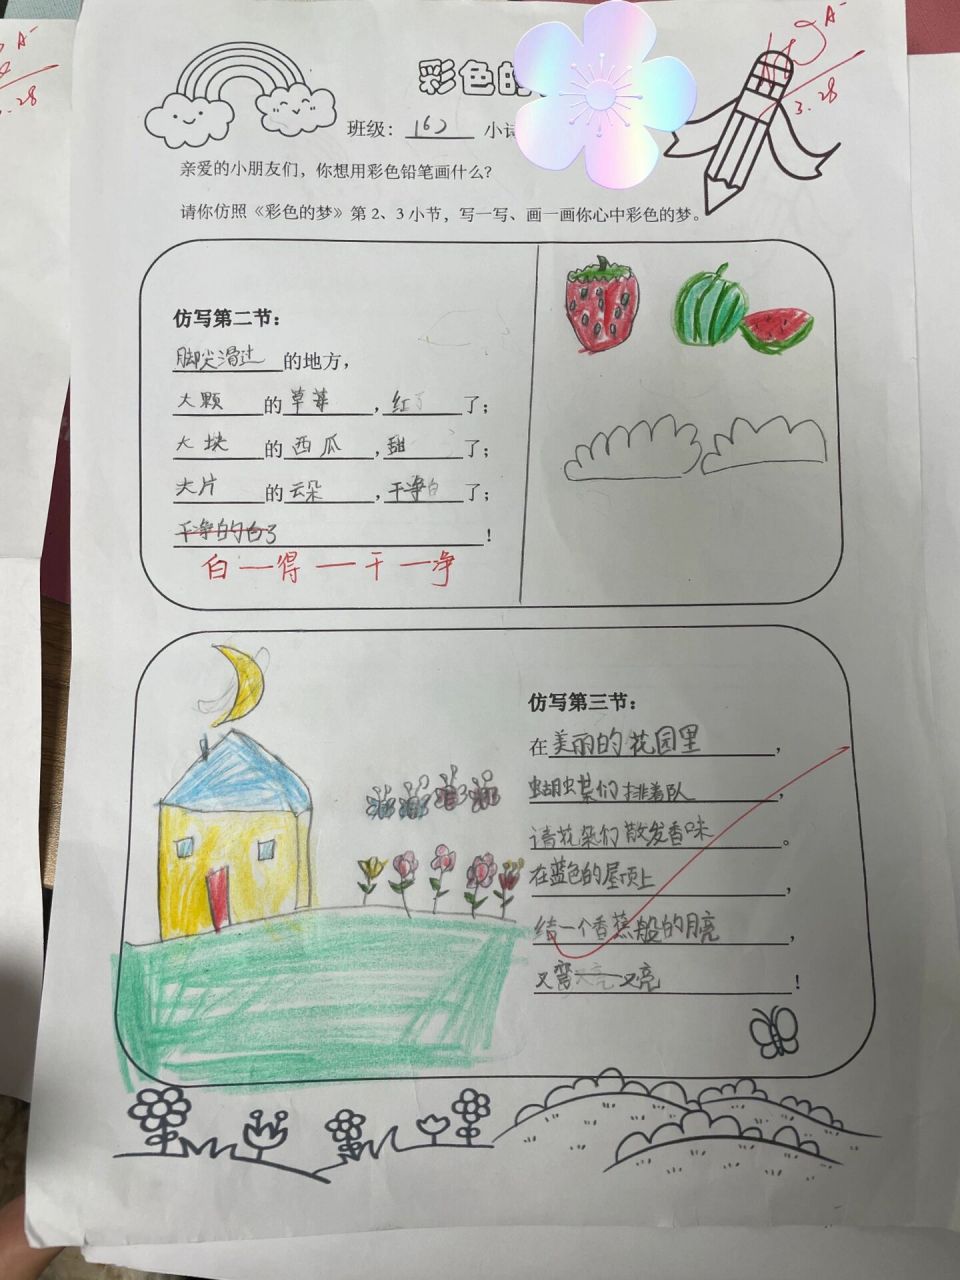 彩色的
班级：162 小诗
亲爱的小朋友们，你想用彩色铅笔画什么？
请你仿照《彩色的梦》第2、3小节，写一写、画一画你心中彩色的梦。
A-
3.28
A-
.28
仿写第二节：
脚尖滑过的地方，
大颗的草莓，红了；
大块的西瓜，甜了；
大片的云朵，干净白了；
干净的白了！
白一得一干一净
仿写第三节：
在美丽的花园里，
蝴蝶们排着队，
请花朵们散发香味。
在蓝色的屋顶上，
结一个香蕉般的月亮，
又弯又亮！